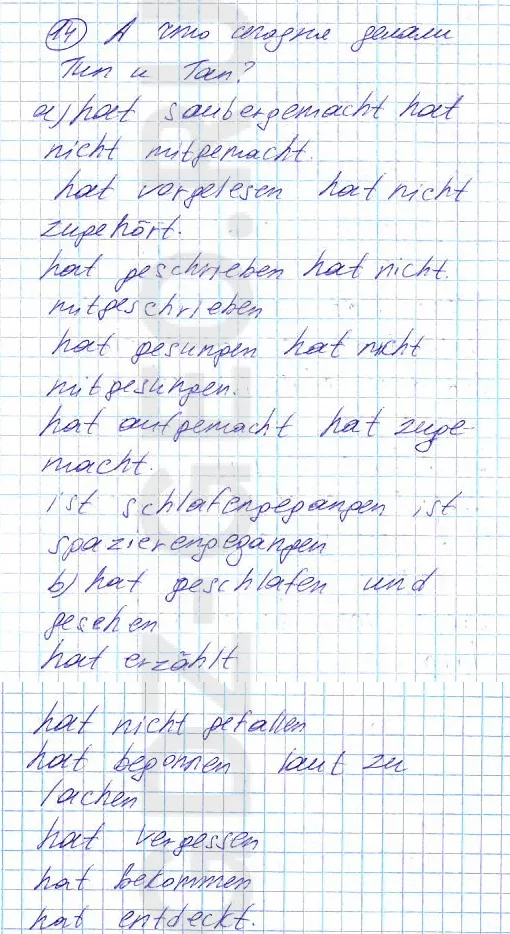 14 А что сегодня делали
Тип и Тап?
a) hat saubergemacht hat
nicht mitgemacht.
hat vorgelesen hat nicht
zugehört.
hat geschrieben hat nicht
mitgeschrieben
hat gesungen hat nicht
mitgesungen.
hat aufgemacht hat zuge-
macht.
ist schlafengegangen ist
spazierengegangen
b) hat geschlafen und
gesehen
hat erzählt
hat nicht gefallen
hat begonnen laut zu
lachen
hat vergessen
hat bekommen
hat entdeckt.